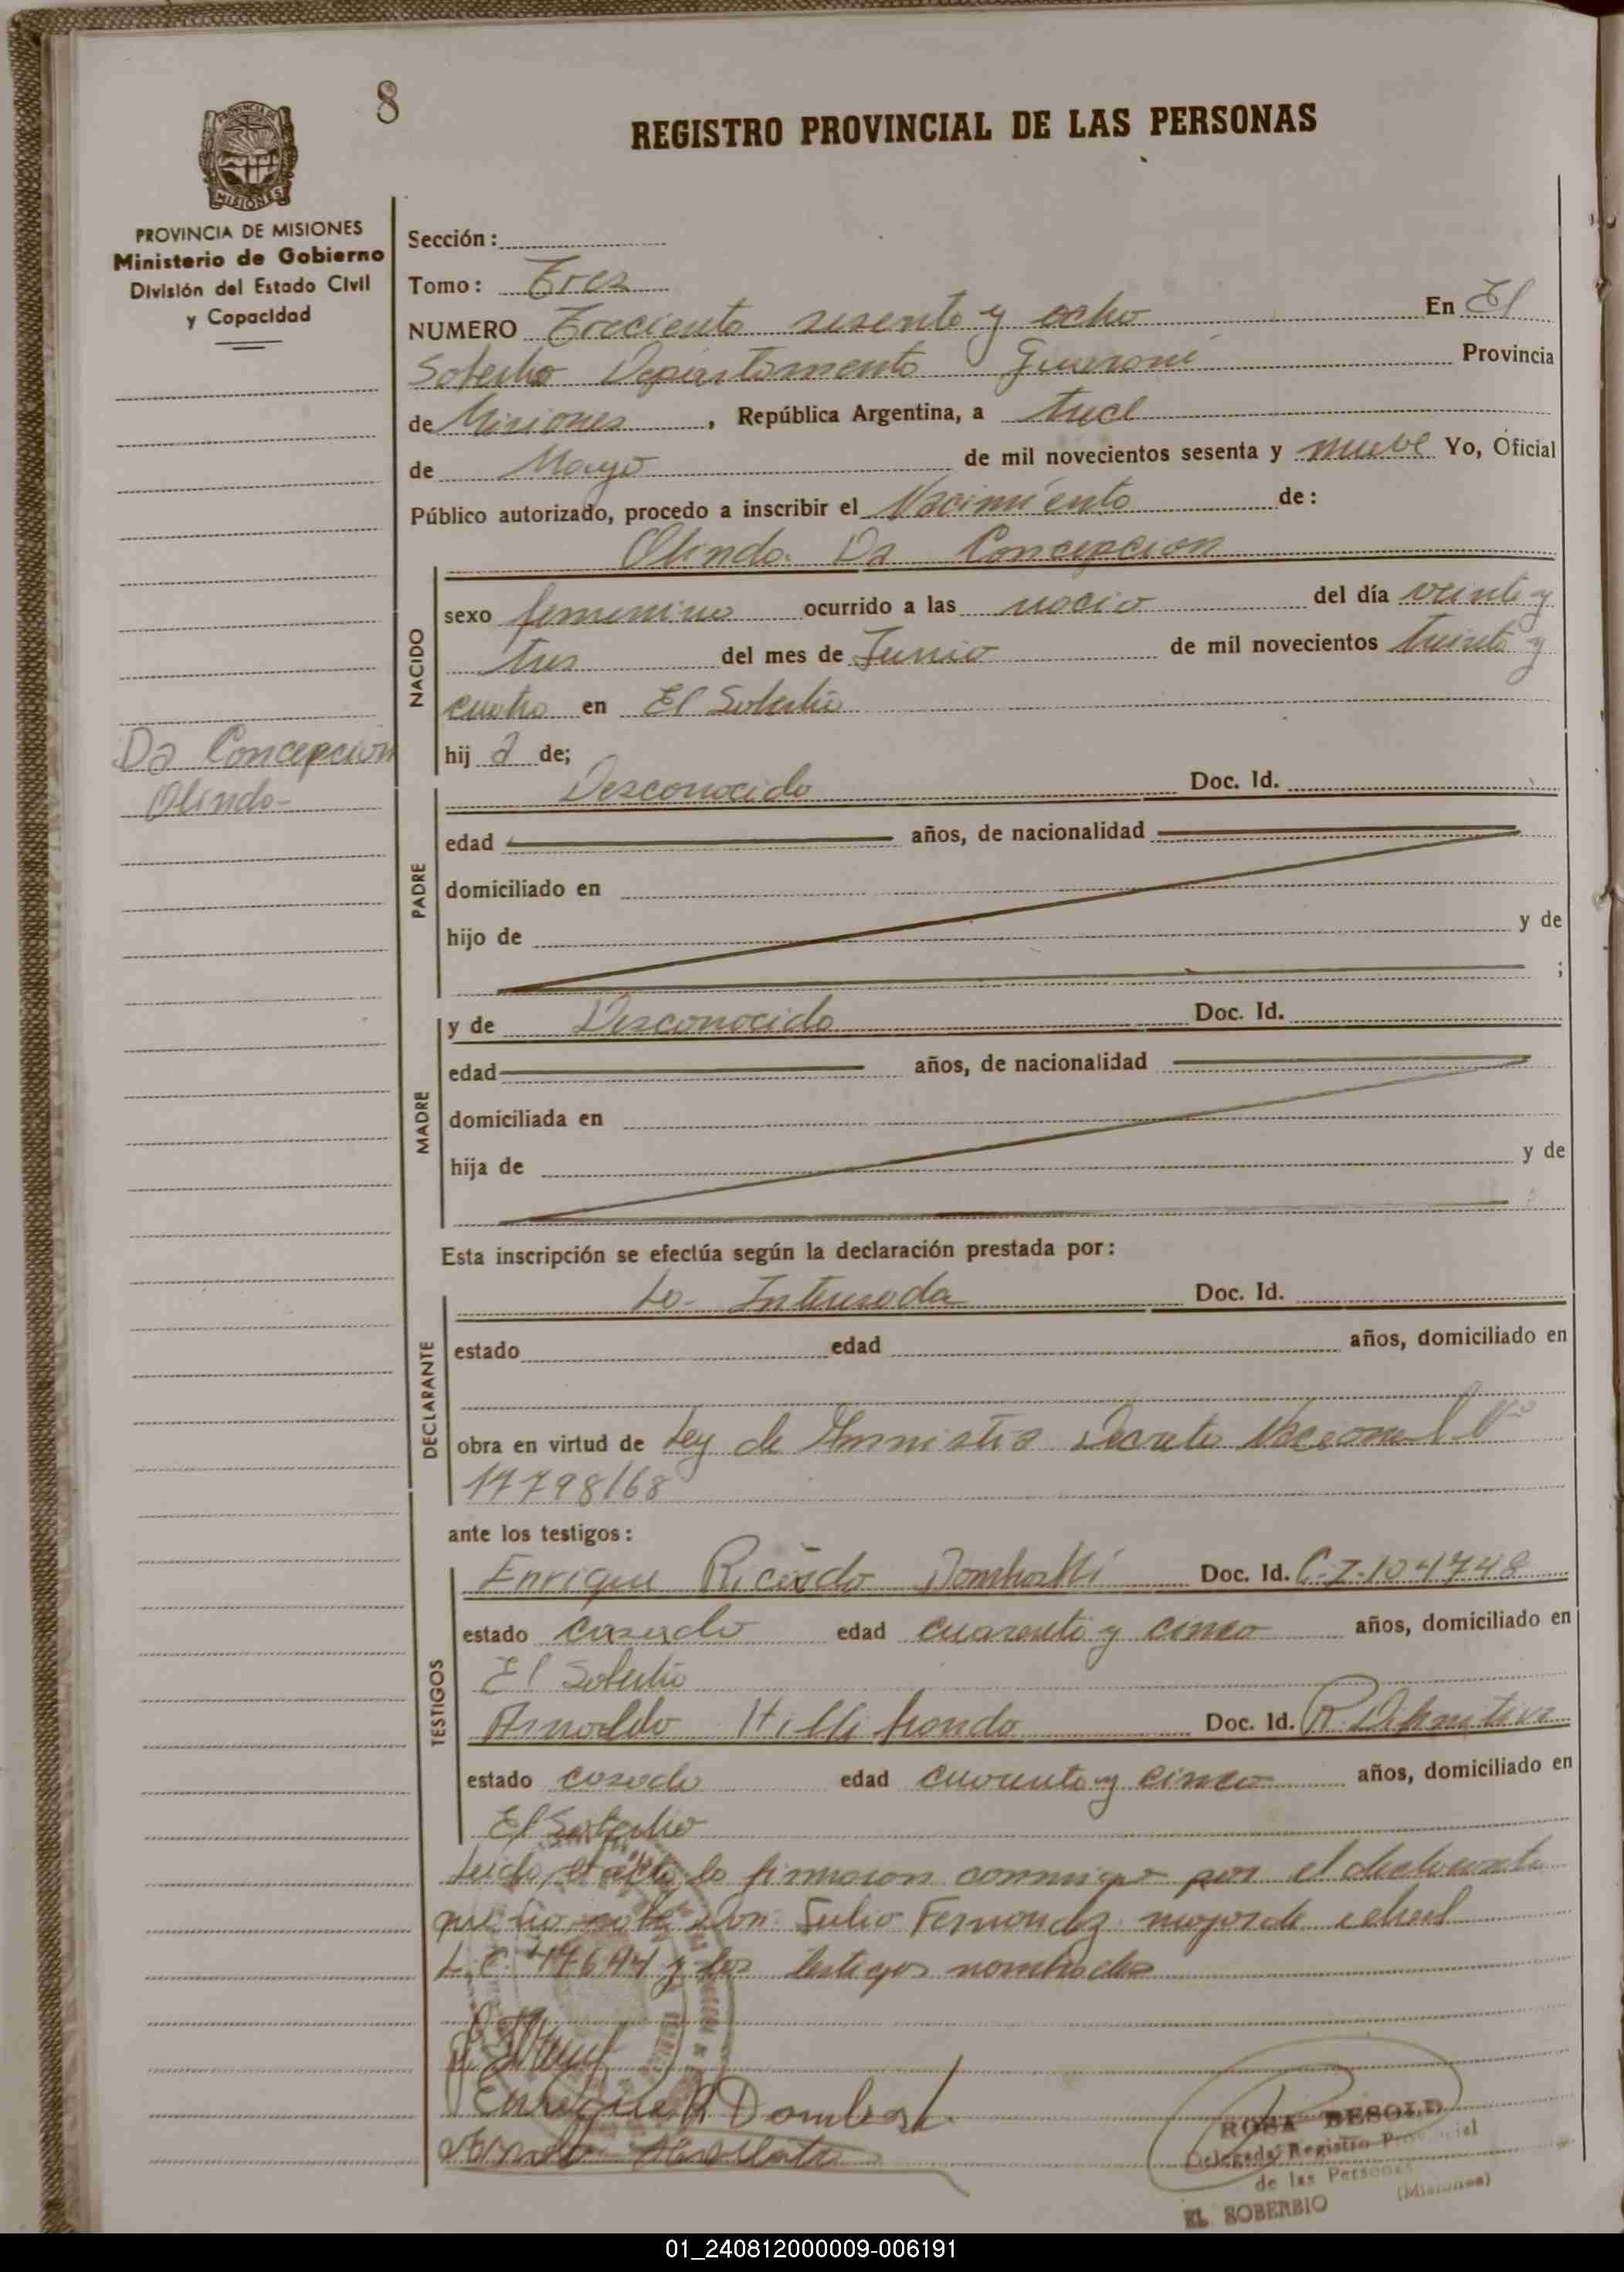 8
REGISTRO PROVINCIAL DE LAS PERSONAS
PROVINCIA DE MISIONES
MISIONES
PROVINCIA DE MISIONES
Ministerio de Gobierno
División del Estado Civil
y Capacidad
Sección:
Tomo: Tres
NUMERO Treciento sesenta y ocho En El
Soberbio Departamento Guaraní Provincia
de Misiones, República Argentina, a trece
de Mayo de mil novecientos sesenta y nueve Yo, Oficial
Público autorizado, procedo a inscribir el Nacimiento de:
Olinda Da Concepcion
NACIDO
sexo femenino ocurrido a las nacio del día veinte y
tres del mes de Junio de mil novecientos treinta y
cuatro en El Soberbio
Da Concepcion
Olinda-
hij a de;
PADRE
Desconocido Doc. Id.
edad años, de nacionalidad
domiciliado en
hijo de y de
;
MADRE
y de Desconocida Doc. Id.
edad años, de nacionalidad
domiciliada en
hija de y de
Esta inscripción se efectúa según la declaración prestada por:
DECLARANTE
La Interesada Doc. Id.
estado edad años, domiciliado en
obra en virtud de Ley de Amnistia Decreto Nacional Nº
17798/68
ante los testigos:
TESTIGOS
Enrique Ricardo Doc. Id. C.I.104748
estado casado edad cuarenta y cinco años, domiciliado en
El Soberbio
Arnoldo Doc. Id. R. Definitiva
estado casado edad cuarenta y cinco años, domiciliado en
El Soberbio
Leida el acta la firmaron conmigo por el declarante
que no Julio Fernandez mayor de edad
y los testigos nombrados
Enrique R
ROSA BESOLD
Delegada Registro Provincial
de las Personas
EL SOBERBIO (Misiones)
01_240812000009-006191